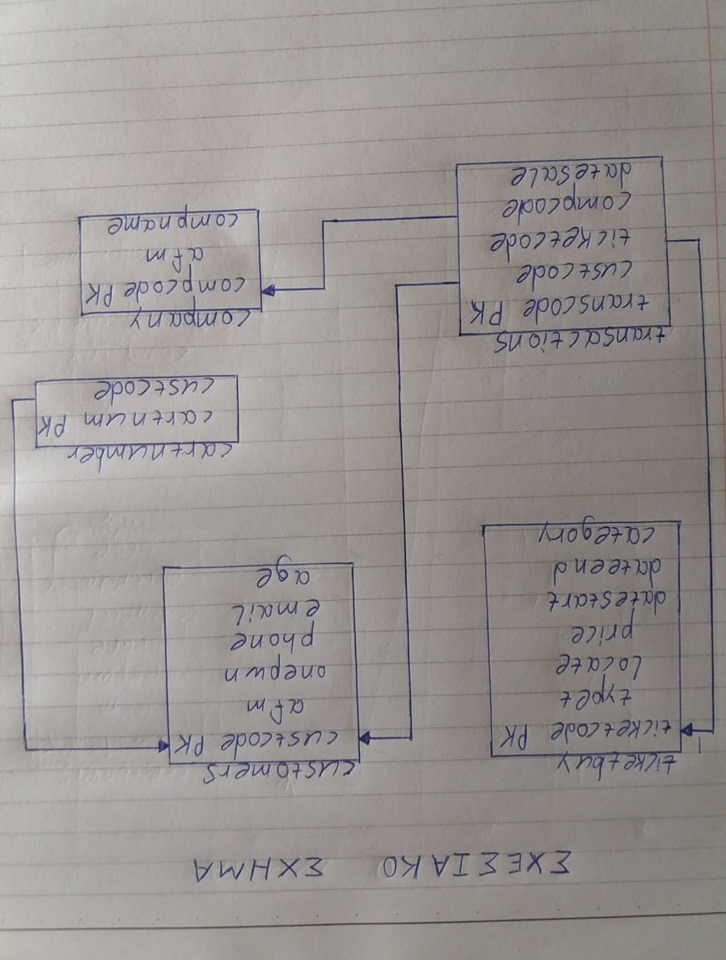 ΣΧΕΣΙΑΚΟ ΣΧΗΜΑ
ticketbuy
ticketcode PK
typet
locate
price
datestart
dateend
category
customers
custcode PK
afm
onepwn
phone
email
age
cartnumber
cartnum PK
custcode
transactions
transcode PK
custcode
ticketcode
compcode
datesale
company
compcode PK
afm
compname